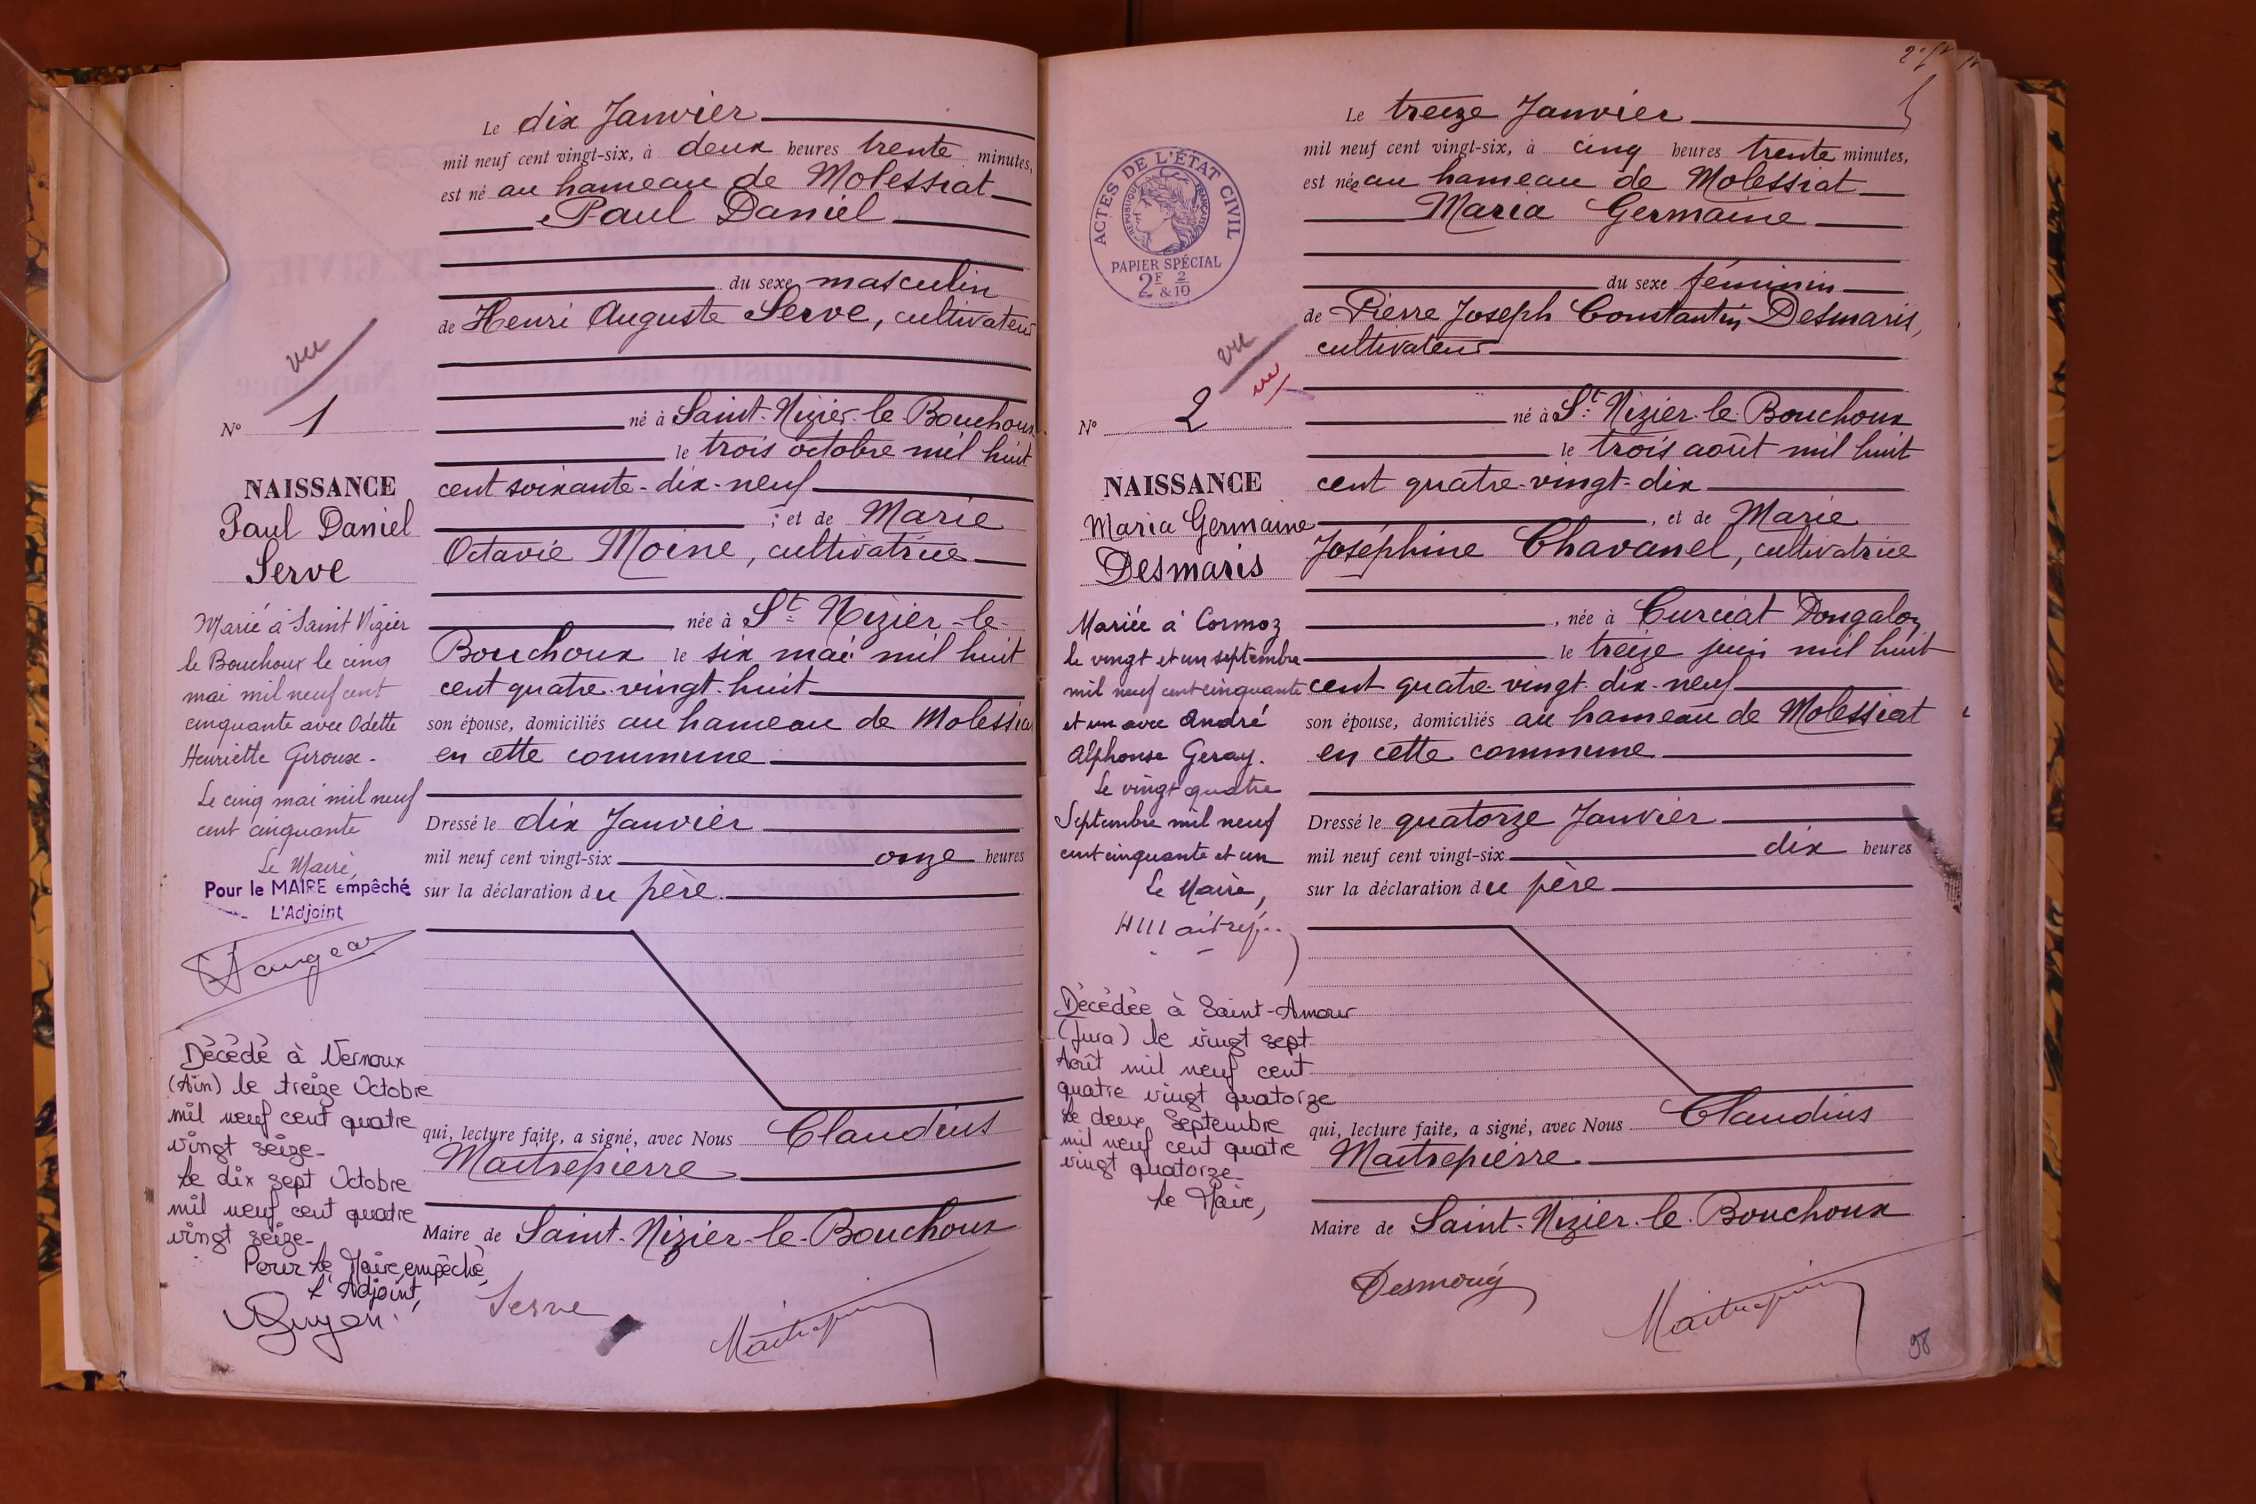 vu
N° 1
NAISSANCE
Paul Daniel
Serve
Marié à Saint Nizier
le Bouchoux le cinq
mai mil neuf cent
cinquante avec Odette
Henriette Giroux.
Le cinq mai mil neuf
cent cinquante
Le Maire,
Pour le MAIRE empêché
L'Adjoint
Décédé à Vernoux
(Ain) le treize Octobre
mil neuf cent quatre
vingt seize-
Le dix sept Octobre
mil neuf cent quatre
vingt seize-
Pour le Maire, empêché,
l'Adjoint,
Le dix Janvier
mil neuf cent vingt-six, à deux heures trente minutes,
est né au hameau de Molessiat
Paul Daniel
du sexe masculin
de Henri Auguste Serve, cultivateur
né à Saint-Nizier-le Bouchoux
le trois octobre mil huit
cent soixante-dix-neuf
; et de Marie
Octavie Moine, cultivatrice
née à St Nizier-le-
Bouchoux le six mai mil huit
cent quatre-vingt-huit
son épouse, domiciliés au hameau de Molessia
en cette commune
Dressé le dix Janvier
mil neuf cent vingt-six onze heures
sur la déclaration du père.
qui, lecture faite, a signé, avec Nous Claudius
Maitrepierre
Maire de Saint-Nizier-le-Bouchoux
Serve
Maitrepierre
ACTES DE L'ÉTAT CIVIL
RÉPUBLIQUE FRANÇAISE
PAPIER SPÉCIAL
2F & 2/10
vu
vu
N° 2
NAISSANCE
Maria Germaine
Desmaris
Mariée à Cormoz
le vingt et un septembre
mil neuf cent cinquante
et un avec André
Alphonse Geray.
Le vingt quatre
Septembre mil neuf
cent cinquante et un
Le Maire,
Décédée à Saint-Amour
(Jura) le vingt sept
Août mil neuf cent
quatre vingt quatorze
Le deux Septembre
mil neuf cent quatre
vingt quatorze-
Le Maire,
Le treize Janvier
mil neuf cent vingt-six, à cinq heures trente minutes,
est née au hameau de Molessiat
Maria Germaine
du sexe féminin
de Pierre Joseph Constantin Desmaris,
cultivateur
né à St Nizier-le-Bouchoux
le trois août mil huit
cent quatre-vingt-dix
, et de Marie
Joséphine Chavanel, cultivatrice
, née à Curciat Dongalon
le treize juin mil huit
cent quatre vingt dix-neuf
son épouse, domiciliés au hameau de Molessiat
en cette commune
Dressé le quatorze Janvier
mil neuf cent vingt-six dix heures
sur la déclaration du père
qui, lecture faite, a signé, avec Nous Claudius
Maitrepierre
Maire de Saint-Nizier-le-Bouchoux
Maitrepierre
98